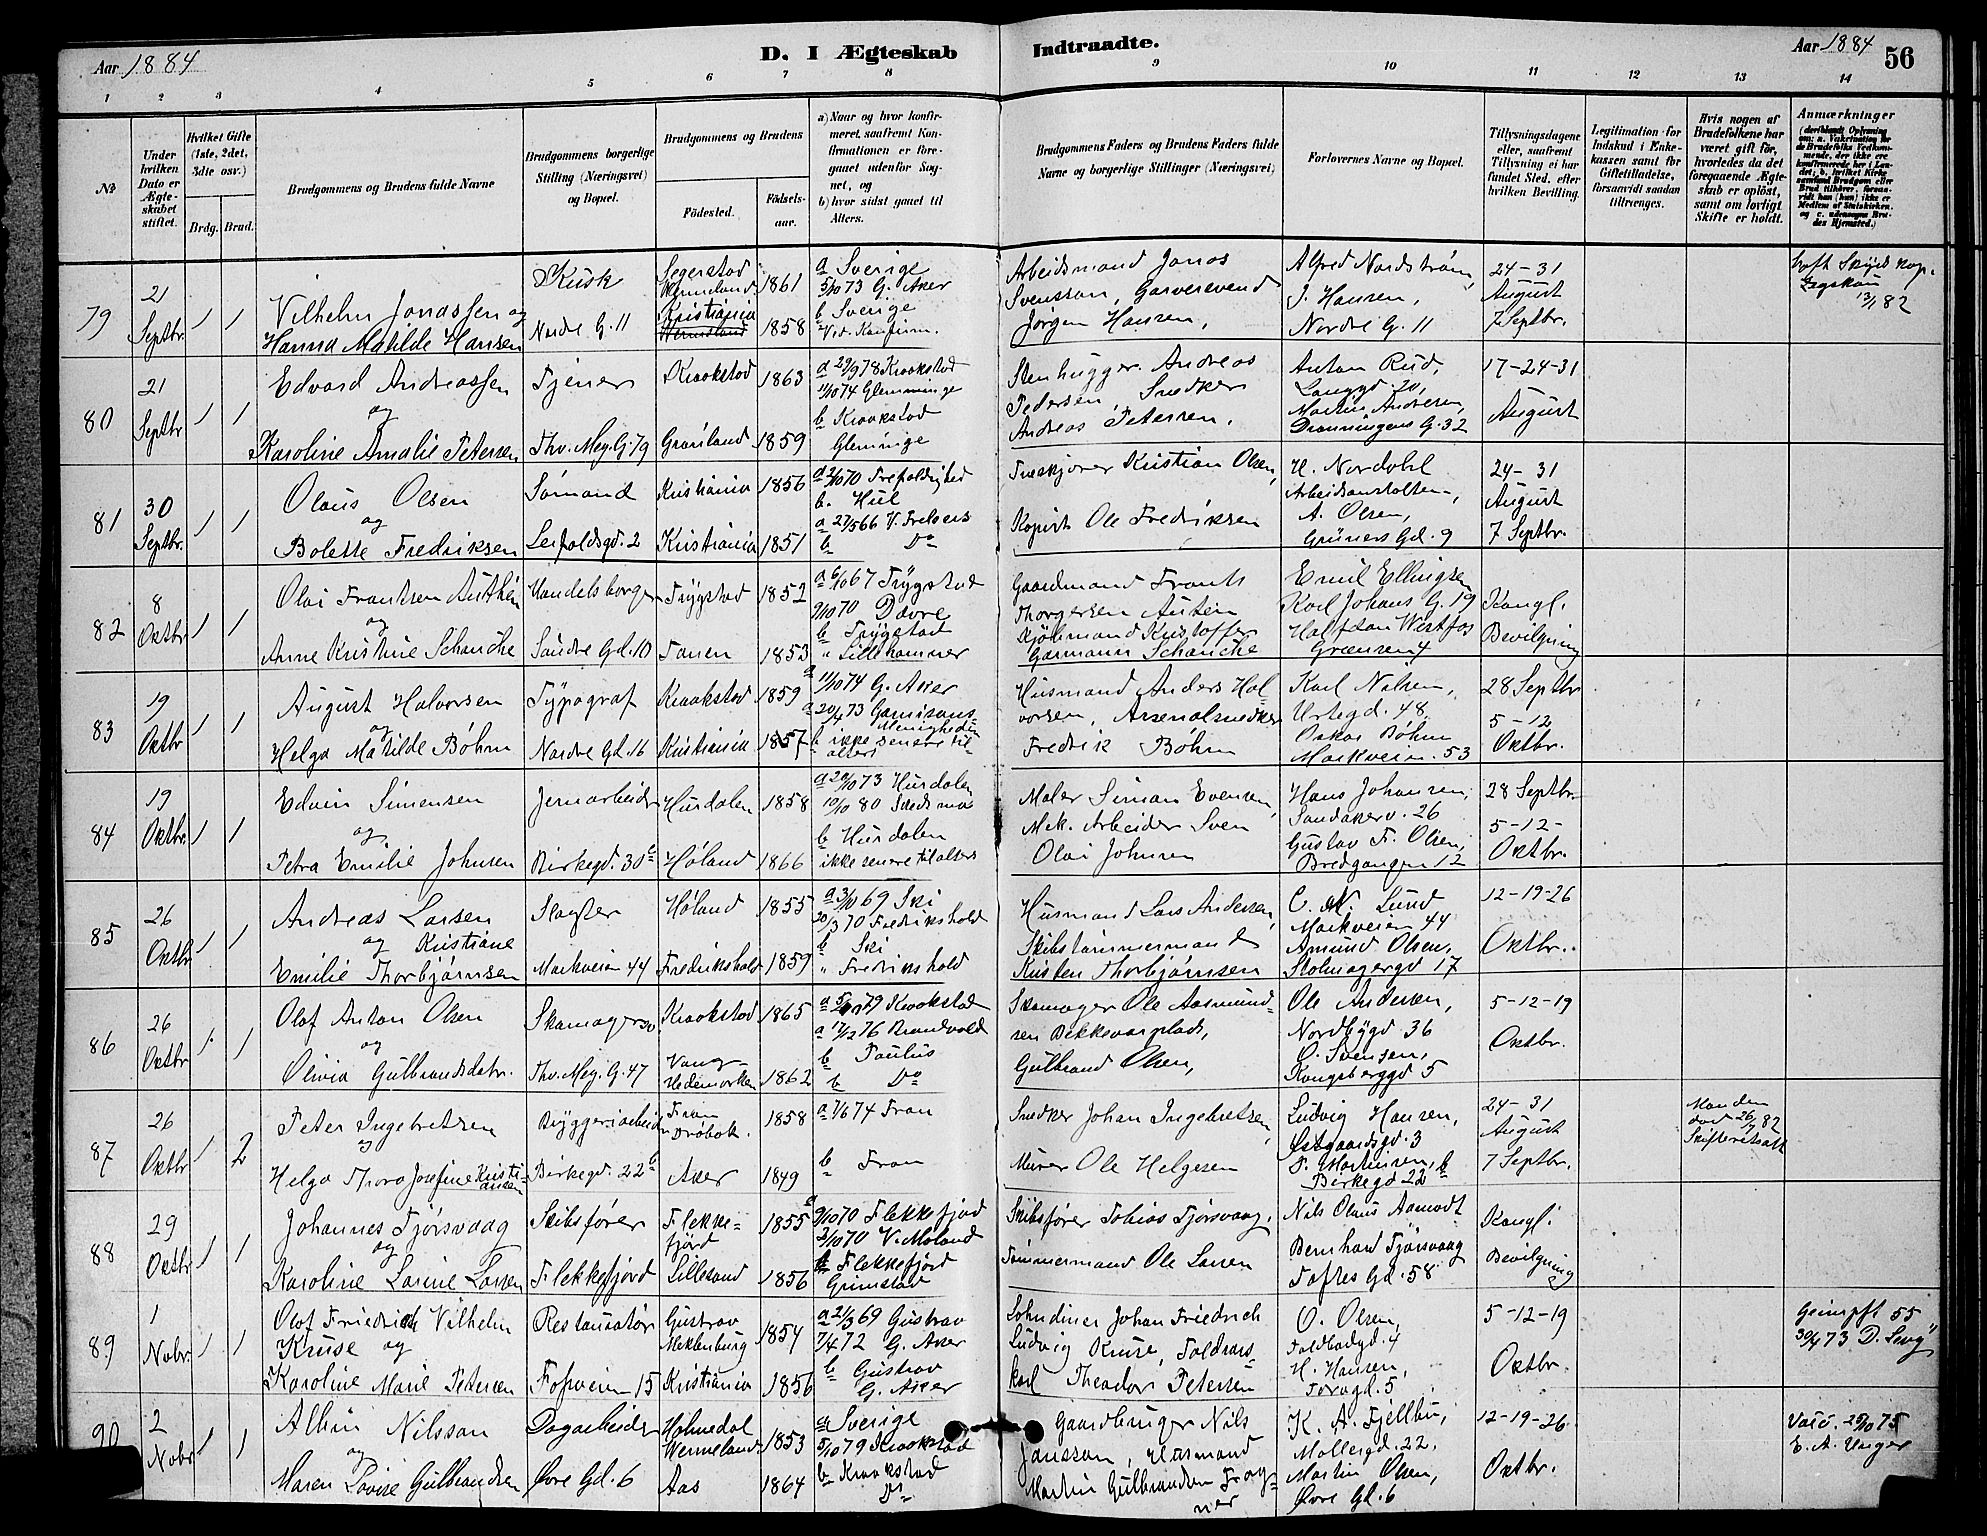 Aar 1884
D. I Ægteskab
Indtraadte.
Aar 1884
56
1 2 3 4 5 6 7 8 9 10 11 12 13 14
№
Under hvilken Dato er Ægteskabet stiftet.
Hvilket Gifte (1ste, 2det, 3die osv.)
Brdg. Brud.
Brudgommens og Brudens fulde Navne
Brudgommens borgerlige Stilling (Næringsvei) og Bopæl.
Brudgommens og Brudens
Fødested.
Fødselsaar.
a) Naar og hvor konfirmeret, saafremt Konfirmationen er foregaaet udenfor Sognet, og
b) hvor sidst gaaet til Alters.
Brudgommens Faders og Brudens Faders fulde Navne og borgerlige Stillinger (Næringsvei)
Forlovernes Navne og Bopæl.
Tillysningsdagene eller, saafremt Tillysning ei har fundet Sted, efter hvilken Bevilling.
Legitimation for Indskud i Enkekassen samt for Giftetilladelse, forsaavidt saadan tiltrænges.
Hvis nogen af Brudefolkene har været gift før, hvorledes da det foregaaende Ægteskab er opløst, samt om lovligt Skifte er holdt.
Anmærkninger
79
21 Septbr.
1 1
Vilhelm Jonassen og
Hanna Matilde Hansen
Kusk
Nordre G. 11
Segerstad
Kristiania
1861
1858
a Sverige
5/10 73 G. Aker
b Sverige
Arbeidsmand Jonas
Svensson, Garversvend
Jørgen Hansen,
Alfred Nordstrøm,
J. Hansen,
Nordre G. 11
24-31
August
7 Septbr.
80
21 Septbr
1 1
Edvard Andreassen
og
Karoline Amalie Petersen
Tjener
Thv. Mey. G. 79
Kraakstad
Grønland
1863
1859
a 29/9 78 Kraakstad
11/10 74 Glemminge
b Kraakstad
Gleminge
Stenhugger Andreas
Pedersen, Snedker
Andreas Petersen.
Anton Rud,
Langgd. 20,
Martin Andresen,
Dronningens G. 32
17-24-31
August
81
30 Septbr.
1 1
Olaus Olsen
og
Bolette Fredriksen
Sømand
Leifoldsgd. 2
Kristiania
Kristiania
1856
1851
a 2/10 70 Trefoldighed
b. Hul
a 27/5 66 V. Frelsers
b Do
Kristian Olsen,
Kopist Ole Fredriksen
H. Nordahl
Arbeidsanstalten,
A. Olsen,
Grüners Gd. 9
24-31
August
7 Septbr.
82
8 Oktbr.
1 1
Olai Frantsen Authén
og
Anne Kristine Schanche
Handelsborger
Søndre Gd. 10
Trygstad
Tanen
1852
1853
a 6/10 67 Trygstad
9/10 70 Dovre
b Trygstad
" Lillehammer
Gaardmand Frants
Thorgersen Auten
Kjøbmand Kristoffer
Garmann Schanche
Emil Ellingsen
Karl Johans G. 19
Halfdan Westfos
Grænsen 4
Kongl.
Bevilgning
83
19 Oktbr
1 1
August Halvorsen
og
Helga Matilde Bøhm
Typograf
Nordre Gd. 16
Kraakstad
Kristiania
1859
1857
a 11/10 74 G. Aker
a 20/4 73 Garnisons-
Menigheden
b ikke senere til-
alters
Husmand Anders Hal
vorsen, Arsenalsnedker
Fredrik Bøhm
Karl Nilsen,
Urtegd. 48
Oskar Bøhm
Markveien. 53
28 Septbr
5-12
Oktbr.
84
19 Oktbr.
1 1
Edvin Simensen
og
Petra Emilie Johnsen
Jernarbeider
Birkegd. 30 b
Hurdalen
Høland
1858
1866
a 20/10 73 Hurdalen
10/10 80
b Hurdalen
ikke senere til alters
Maler Simon Evensen,
Mek. Arbeider Sven
Olai Johnsen
Hans Johansen,
Sandakerv. 26
Gustav F. Olsen,
Bredgangen 12
28 Septbr.
5-12-
Oktbr.
85
26 Oktbr
1 1
Andreas Larsen
og Kristiane
Emilie Thorbjørnsen
Slagter
Markveien 44
Høland
Fredrikshald
1855
1859
a 3/10 69 Ski
20/3 70 Fredrikshald
b Ski
" Fredrikshald
Husmand Lars Andersen,
Skibstømmermand
Kristen Thorbjørnsen
C. M. Lund
Markveien 44
Amund Olsen,
Stolmagergd 17
12-19-26
Oktbr.
86
26 Oktbr
1 1
Olaf Anton Olsen
og
Olivia Gulbrandsdatr.
Skomagersv
Thv. Mey. G. 47
Kraakstad
Vang
Hedemarken
1865
1862
a 5/10 79 Kraakstad
a 17/12 76 Brandvold
b Paulus
b Do
Skomager Ole Aasmund-
sen Bekkevarplads,
Gulbrand Olsen,
Ole Andersen,
Nordbygd 36
O. Svensen,
Kongsberggd 5
5-12-19
Oktbr.
87
26 Oktbr
1 2
Peter Ingebretsen
og
Helga Thora Josefine Kristi-
ansen
Bryggeriarbeider
Birkegd. 22 b
Fron
Drøbak.
Aker
1858
1849
a 7/6 74 Fron
b Fron
Snedker Johan Ingebretsen,
Murer Ole Helgesen
Ludvig Hansen,
Østgaardsgd. 3
P. Martinsen,
Birkegd 22 b
24-31
August
7 Septbr.
Manden
død 26/7 82
Skifteretsatt
88
29 Oktbr
1 1
Johannes Tjørsvaag
og
Karoline Lorine Larsen
Skibsfører
Flekkefjord
Flekke=
fjord
Lillesand
1855
1856
a 9/10 70 Flekkefjord
2/10 70 V. Moland
b Flekkefjord
Grimstad
Skibsfører Tobias Tjørsvaag,
Tømmermand Ole Larsen
Nils Olaus Aamodt
Bernhard Tjørsvaag
Toftes Gd. 58
Kongl.
Bevilgning
89
1 Nobr.
1 1
Olof Friedrich Vilhelm
Kruse og
Karoline Marie Petersen
Restauratør
Fossveien 15
Gustrov
Meklenburg
Kristiania
1854
1856
a 21/3 69 Gustrav
7/4 72 G. Aker
b Gustrav
G. Aker
Lohndiner Johan Friedrich
Ludvig Kruse, Toldvags-
karl Theodor Petersen
O. Olsen,
Toldbodgd. 4
H. Hansen,
Torvgd. 5
5-12-19
Oktbr.
Geimpft 55
90
2 Nobr
1 1
Albin Nilsson
og
Maren Lovise Gulbrandsen
Dagarbeider
Øvre Gd. 6
Holmedal
Wermeland
Aas
1853
1864
a Sverige
5/10 79 Kraakstad
b Kraakstad
Do
Gaardbruger Nils
Jansson, Husmand
Martin Gulbrandsen Frog=
ner
K. A. Fjellbu,
Møllergd. 22,
Martin Olsen,
Øvre Gd. 6
12-19-26
Oktbr.
25/10 75
E. A. Unger